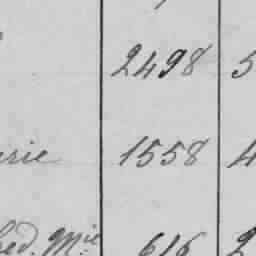 2498 5
rie 1558 4
ed. Mie 616 2